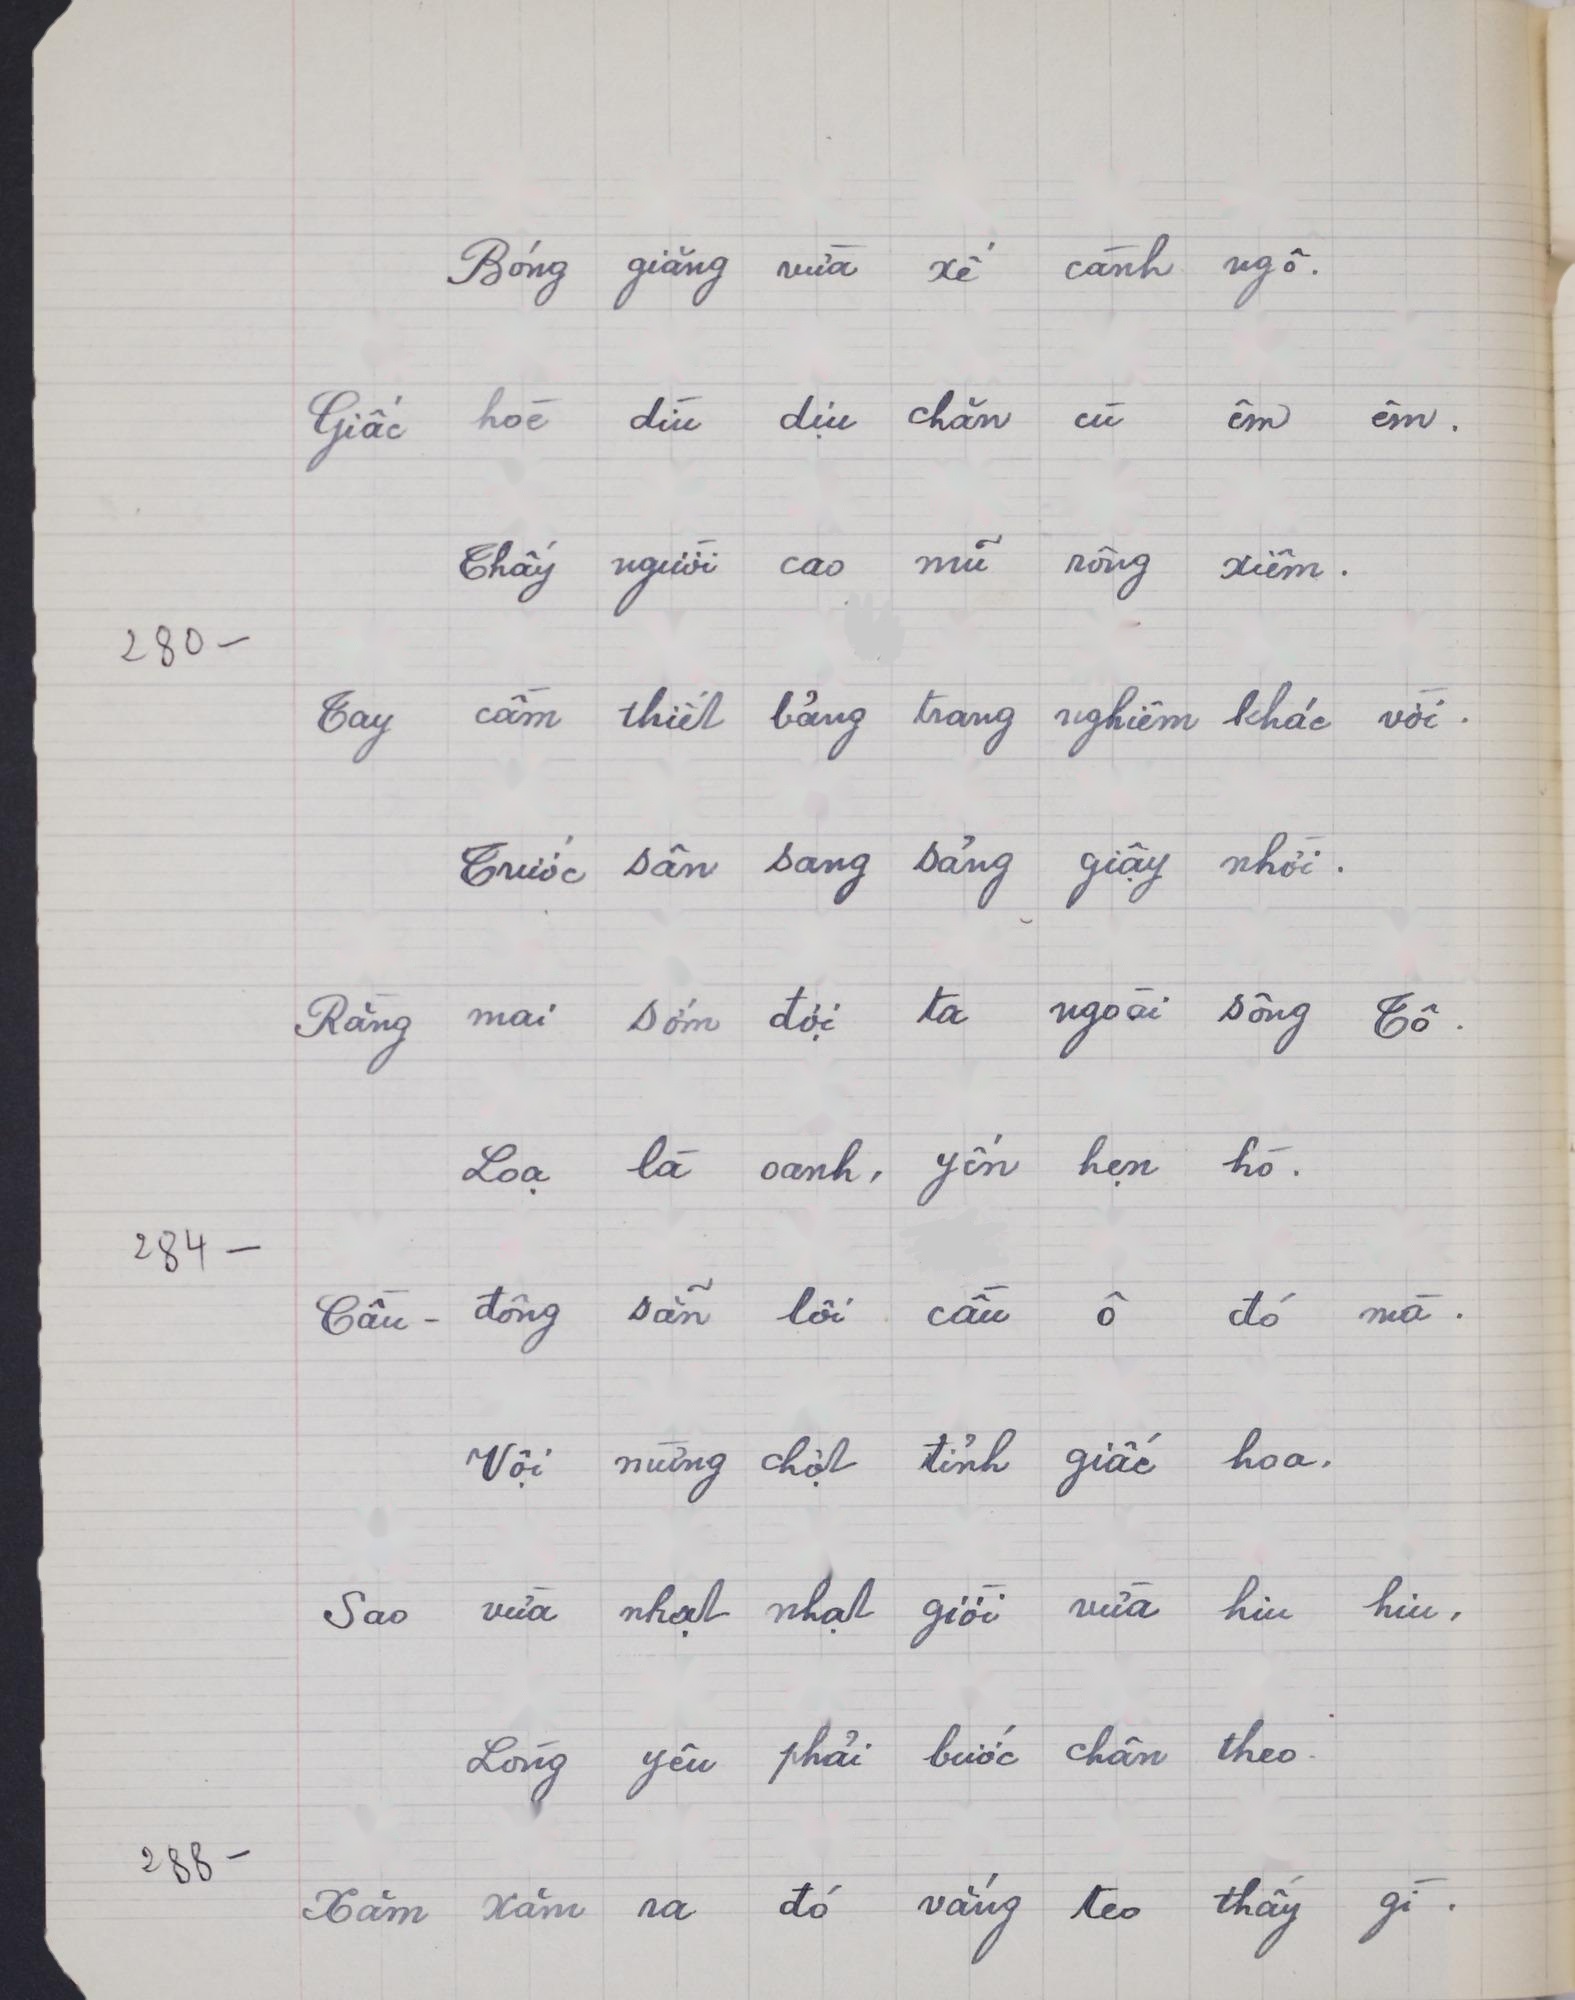 Bóng giăng vừa xế cành ngô.
Giấc hoè dìu dịu chăn cù êm êm.
Thấy người cao mũ rông xiêm.
280-
Tay cầm thiết bảng trang nghiêm khác vời.
Trước sân sang sảng giậy nhời.
Rằng mai sớm đợi ta ngoài sông Tô.
Loạ là oanh, yến hẹn hò.
284-
Cầu- đông sẵn lối cầu ô đó mà.
Vội nừng chợt tỉnh giấc hoa.
Sao vừa nhạt nhạt giời vừa hiu hiu,
Lòng yêu phải bước chân theo.
288-
Xăm xăm ra đó vắng teo thấy gì.